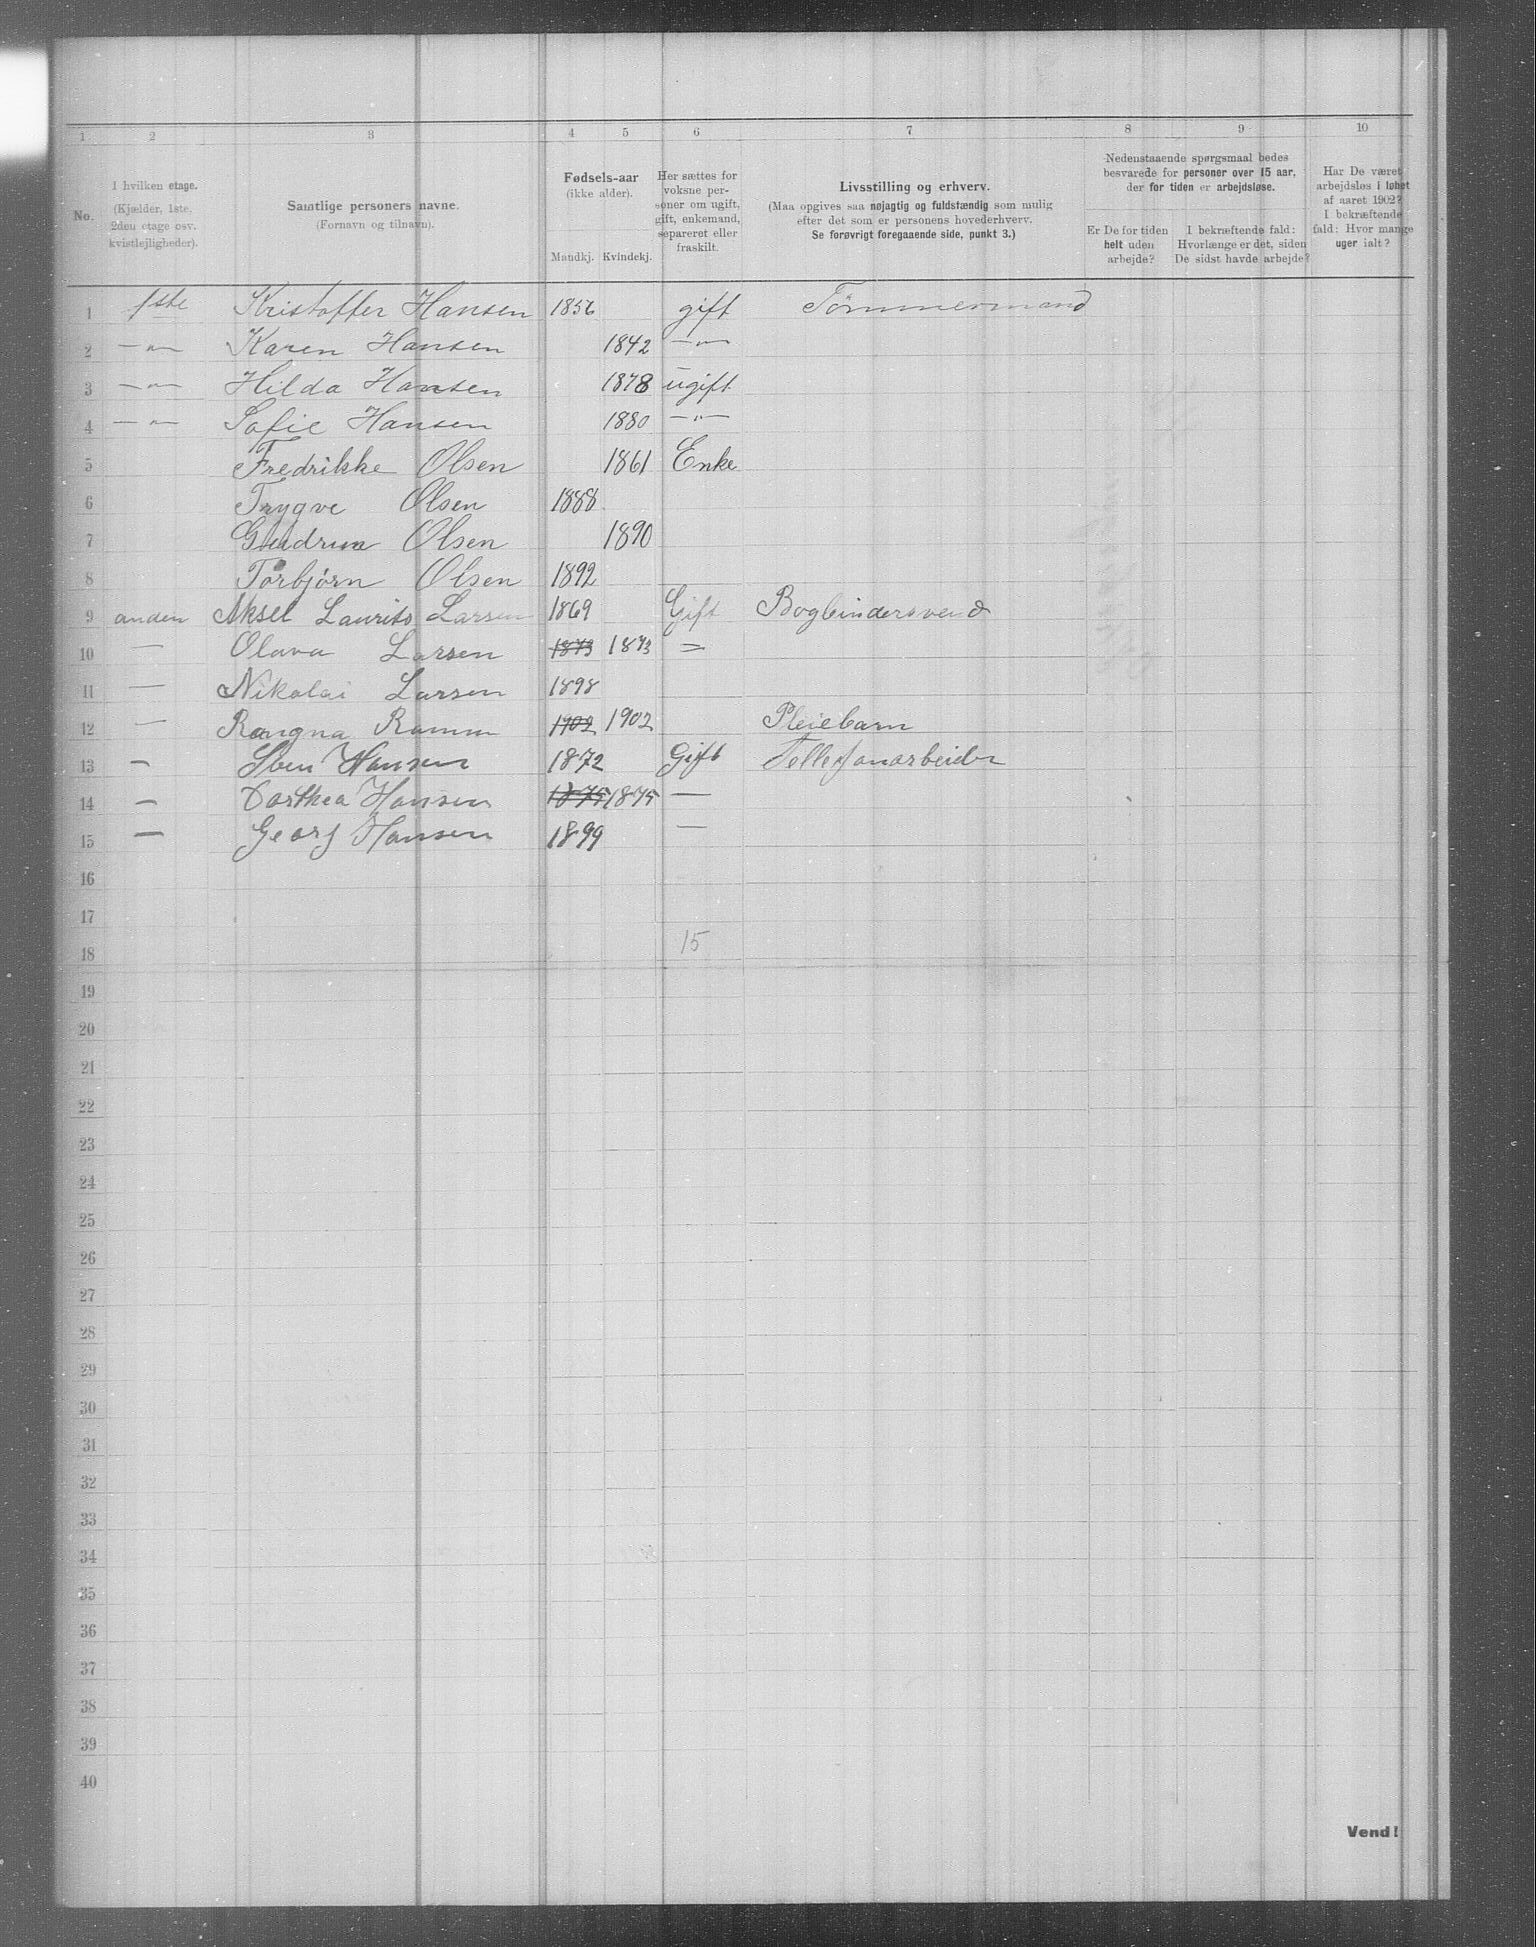 1 2 3 4 5 6 7 8 9 10
No.
I hvilken etage.
(Kjælder, 1ste,
2den etage osv.
kvistlejligheder).
Samtlige personers navne.
(Fornavn og tilnavn).
Fødsels-aar
(ikke alder).
Mandkj. Kvindekj.
Her sættes for
voksne per-
soner om ugift,
gift, enkemand,
separeret eller
fraskilt.
Livsstilling og erhverv.
(Maa opgives saa nøjagtig og fuldsfændig som mulig
efter det som er personens hovederhverv.
Se forøvrigt foregaaende side, punkt 3.)
Nedenstaaende spørgsmaal bedes
besvarede for personer over 15 aar,
der for tiden er arbejdsløse.
Er De for tiden
helt uden
arbejde?
I bekræftende fald:
Hvorlænge er det, siden
De sidst havde arbejde?
Har De været
arbejdsløs i løbet
af aaret 1902?
I bekræftende
fald: Hvor mange
uger ialt?
1 1ste Kristoffer Hansen 1856 gift Tømmermand
2 —"— Karen Hansen 1842 —"—
3 —"— Hilda Hansen 1878 ugift
4 —"— Sofie Hansen 1880 —"—
5 Fredrikke Olsen 1861 Enke
6 Trygve Olsen 1888
7 Gudrun Olsen 1890
8 Torbjørn Olsen 1892
9 anden Aksel Laurits Larsen 1869 Gift Bogbindersvend
10 — Olava Larsen 1873 1873 =
11 — Nikolai Larsen 1898
12 — Rangna Ramm 1902 1902 Pleiebarn
13 — Sven Hansen 1872 Gift Tellefonarbeider
14 — Dorthea Hansen 1875 1875 —
15 — Georg Hansen 1899 —
16
17
18 15
19
20
21
22
23
24
25
26
27
28
29
30
31
32
33
34
35
36
37
38
39
40
Vend!